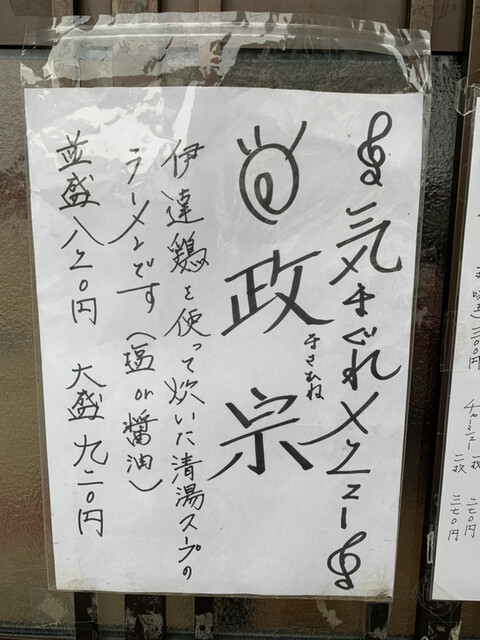 気まぐれメニュー
政宗
まさむね
伊達鶏を使って炊いた清湯スープの
ラーメンです(塩or醤油)
並盛八二〇円 大盛九二〇円
三〇〇円
チャーシュー 一枚 二七〇円
二枚 三七〇円